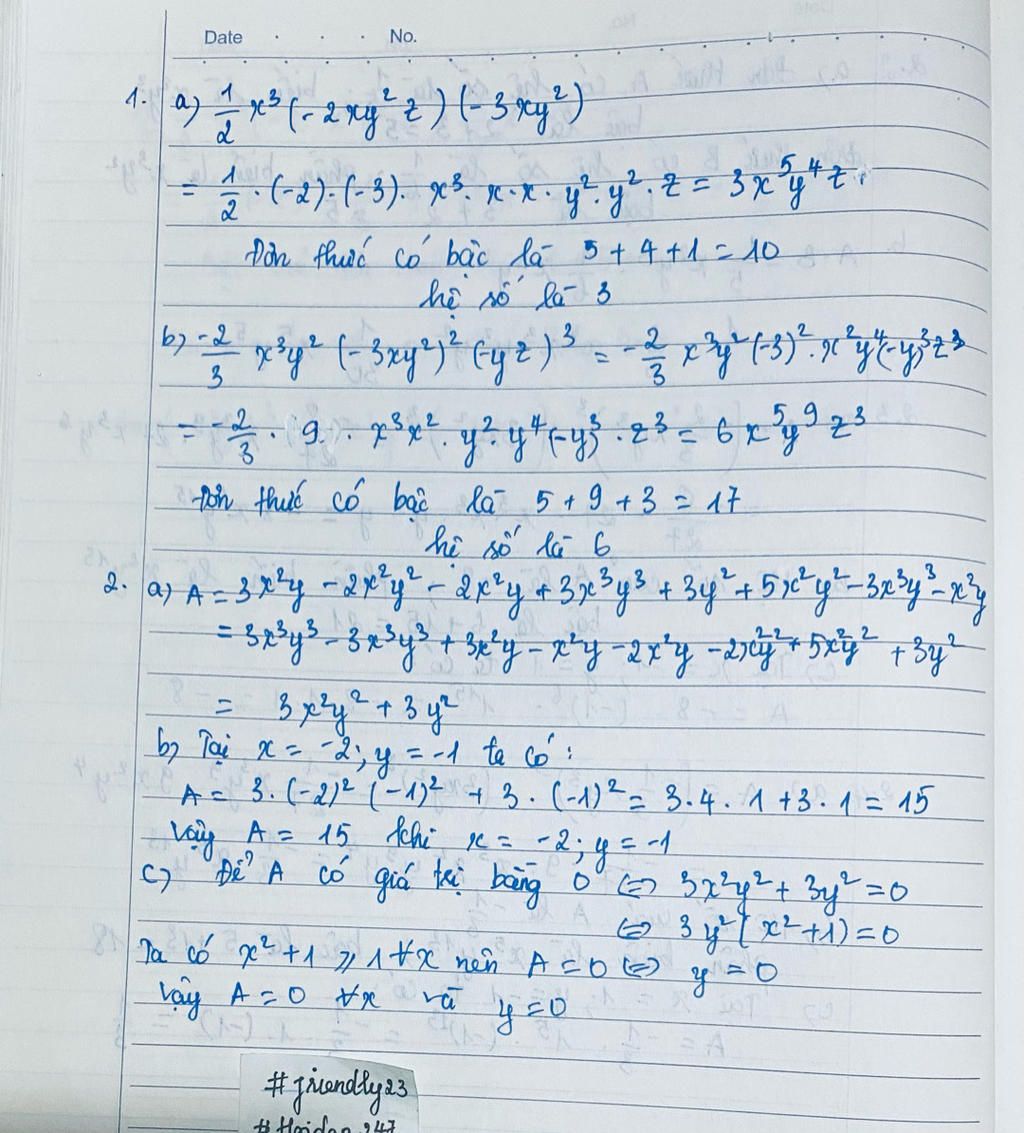 Date . . . No.
1. a) 1/2 x³ (-2xy²z) (-3xy²)
= 1/2 . (-2) . (-3) . x³ . x . x . y² . y² . z = 3x⁵y⁴z.
Đơn thức có bậc là 5 + 4 + 1 = 10
hệ số là 3
b) -2/3 x³y² (-3xy²)² (-yz)³ = -2/3 x³y² (-3)² . x²y⁴ (-y)³ z³
= -2/3 . 9 . x³x² . y² . y⁴ (-y)³ . z³ = 6x⁵y⁹z³
Đơn thức có bậc là 5 + 9 + 3 = 17
hệ số là 6
2. a) A = 3x²y - 2x²y² - 2x²y + 3x³y³ + 3y² + 5x²y² - 3x³y³ - x²y
= 3x³y³ - 3x³y³ + 3x²y - x²y - 2x²y - 2x²y² + 5x²y² + 3y²
= 3x²y² + 3y²
b) Tại x = -2; y = -1 ta có:
A = 3 . (-2)² (-1)² + 3 . (-1)² = 3 . 4 . 1 + 3 . 1 = 15
Vậy A = 15 khi x = -2; y = -1
c) Để A có giá trị bằng 0 ⇔ 3x²y² + 3y² = 0
⇔ 3y² (x² + 1) = 0
Ta có x² + 1 ≥ 1 ∀x nên A = 0 ⇔ y = 0
Vậy A = 0 ∀x và y = 0
#friendly23